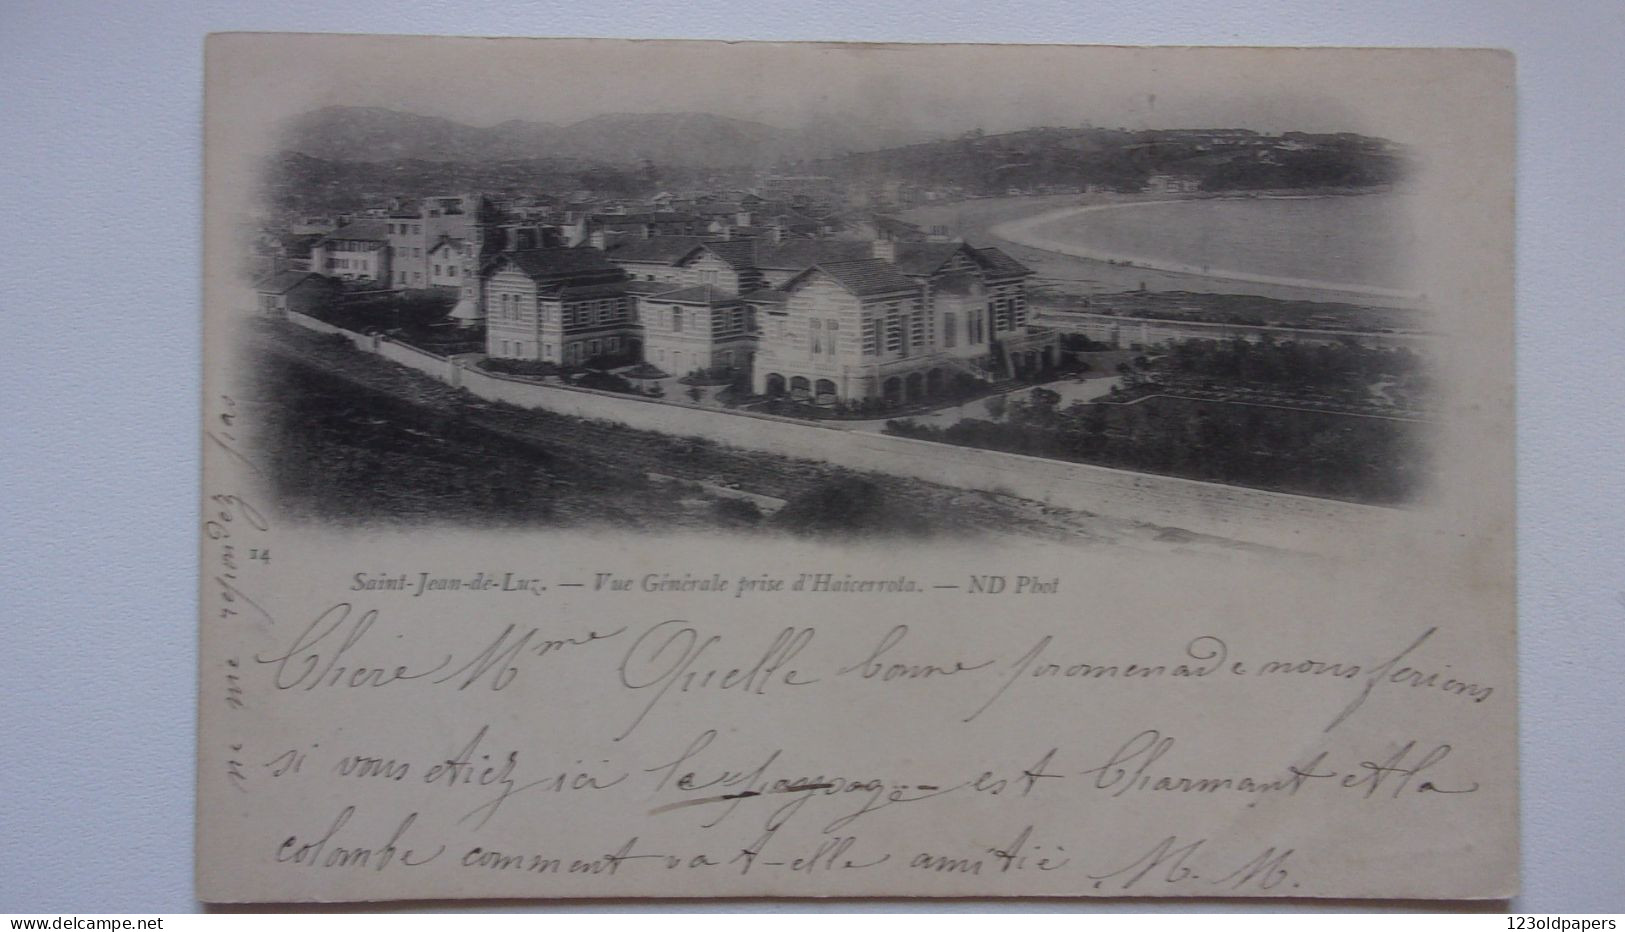 14
Saint-Jean-de-Luz. — Vue Générale prise d'Haicerrota. — ND Phot
Chere Mme Quelle bonne promenade nous ferions
si vous etiez ici le paysage est Charmant et la
colombe comment va t-elle amitié M. M.
ne me repondez pas
123oldpapers